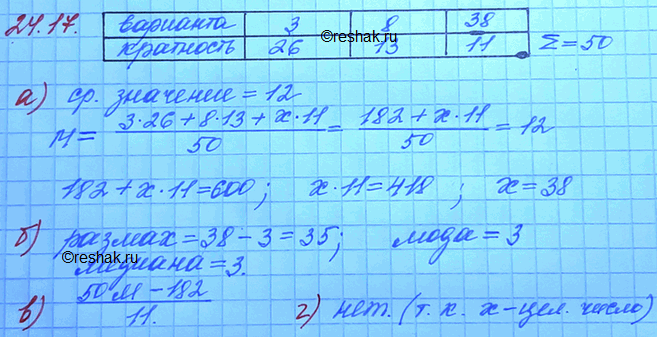 24.17. варианта 3 8 38
кратность 26 13 11 Σ=50
©reshak.ru
а) ср. значение = 12
M = (3·26+8·13+x·11)/50 = (182+x·11)/50 = 12
182+x·11=600; x·11=418; x=38
б) размах=38-3=35; мода=3
©reshak.ru
медиана=3.
в) (50M-182)/11. г) нет. (т. к. x-цел. число)